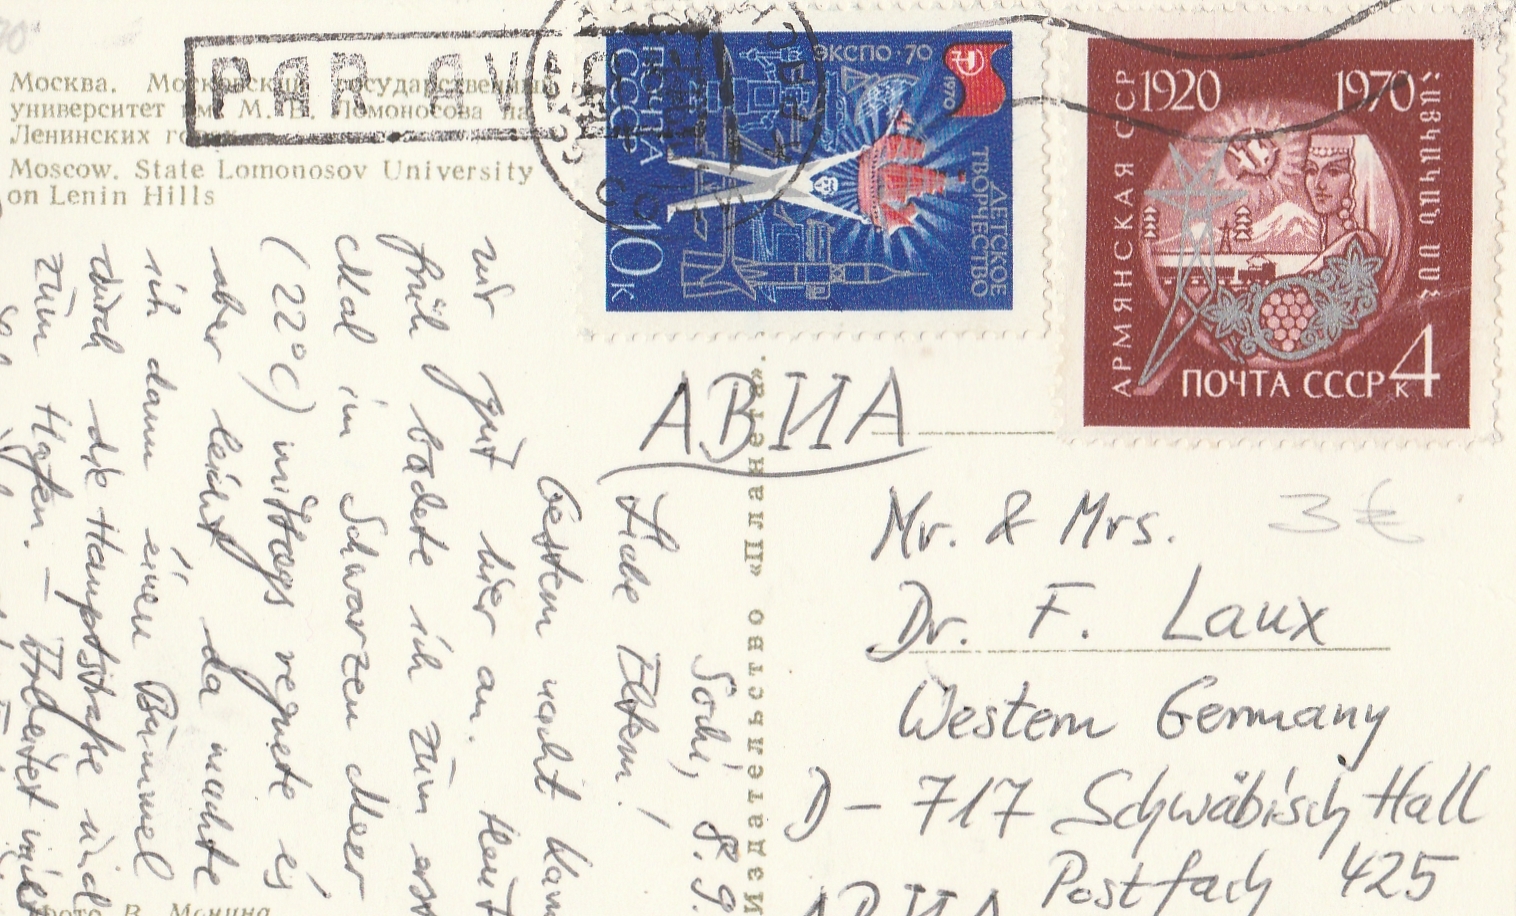 Москва. Московский государственный
университет им. М. В. Ломоносова на
Ленинских горах
Moscow. State Lomonosov University
on Lenin Hills
PAR AVION
ПОЧТА
СССР
10 к
ЭКСПО · 70
1970
ДЕТСКОЕ
ТВОРЧЕСТВО
1920 1970
АРМЯНСКАЯ ССР
ՀԱՅԿԱԿԱՆ ՍՍՀ
ПОЧТА СССР к 4
АВИА
Издательство «Планета».
Sochi, 8.9.
Liebe Eltern!
Gestern nacht kam
wir gut hier an. Heut
früh badete ich zum erst
Mal im Schwarzen Meer
(22°C) mittags regnete es
aber leicht, da machte
ich dann einen Bummel
durch die Hauptstraße und
zum Hafen. –
Mr. & Mrs.
Dr. F. Laux
Western Germany
D – 717 Schwäbisch Hall
Postfach 425
АВИА
3 €
Фото В. Монина